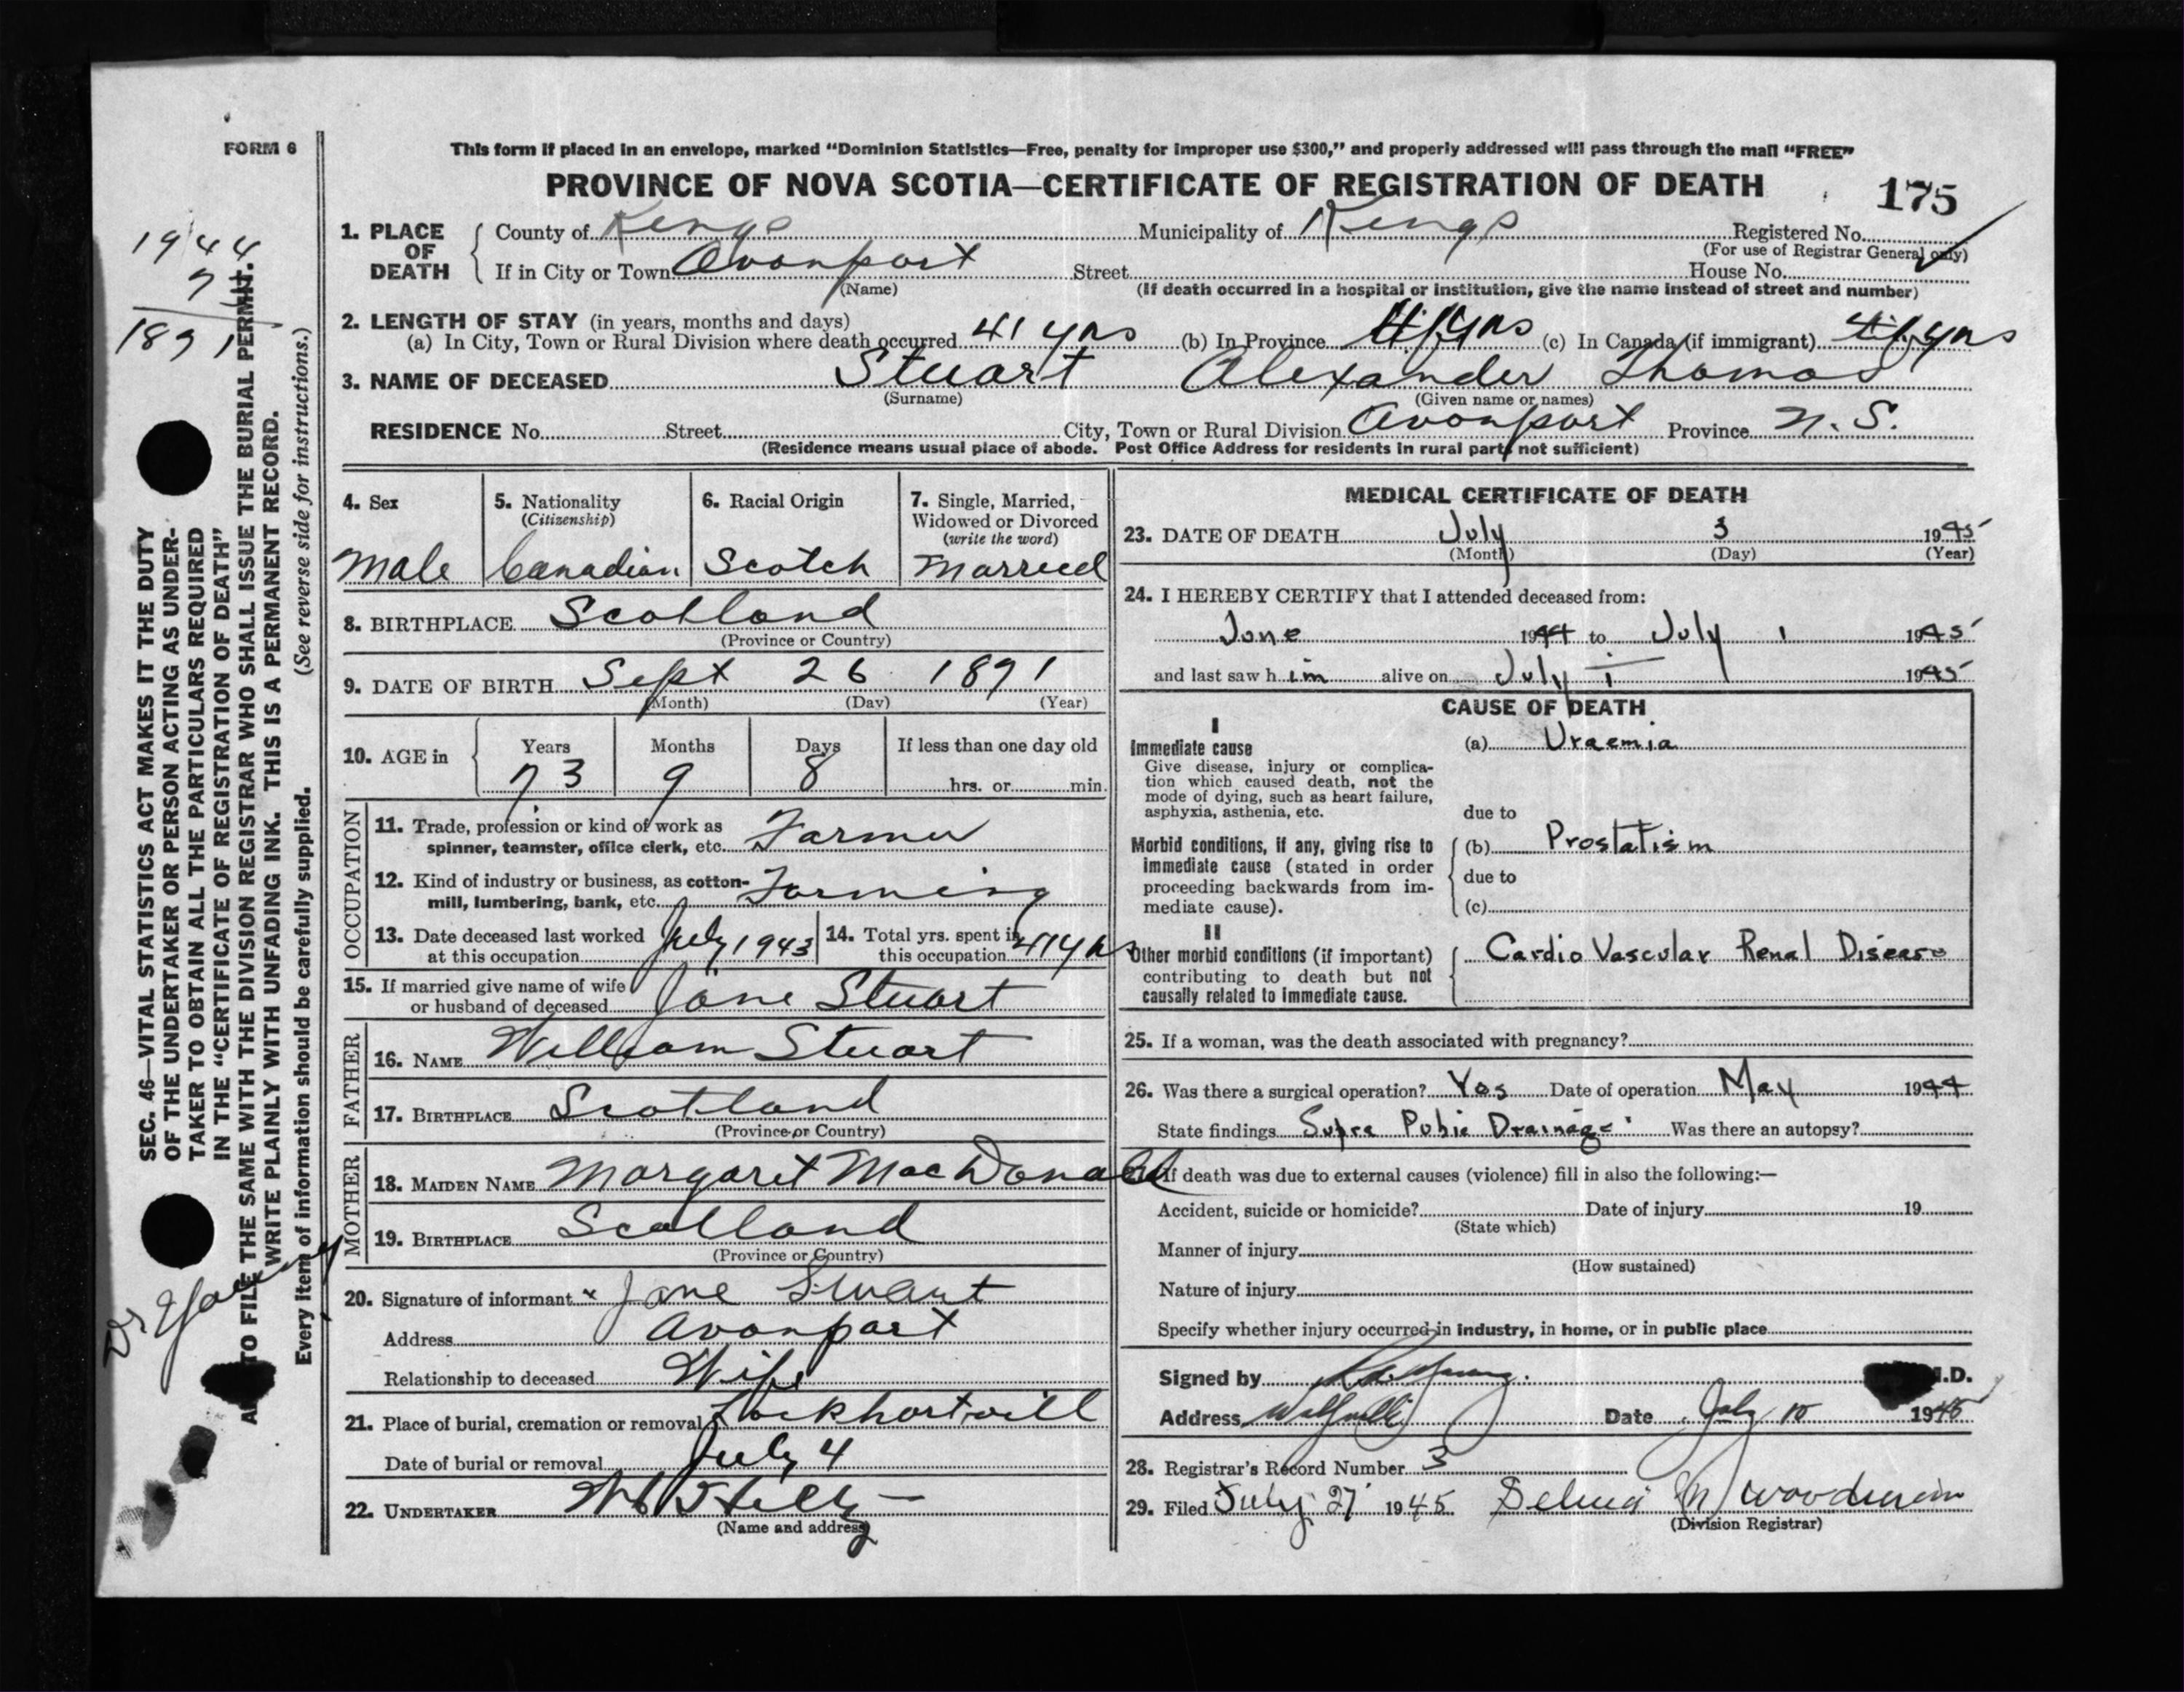 FORM 6
This form if placed in an envelope, marked “Dominion Statistics—Free, penalty for improper use $300,” and properly addressed will pass through the mail “FREE”
PROVINCE OF NOVA SCOTIA—CERTIFICATE OF REGISTRATION OF DEATH
175
1944
7
1. PLACE OF DEATH
County of Kings Municipality of Kings Registered No.
(For use of Registrar General only)
If in City or Town Avonport Street House No.
(Name) (If death occurred in a hospital or institution, give the name instead of street and number)
2. LENGTH OF STAY (in years, months and days)
(a) In City, Town or Rural Division where death occurred 41 yrs (b) In Province 41 yrs (c) In Canada (if immigrant) 41 yrs
3. NAME OF DECEASED Stuart Alexander Thomas
(Surname) (Given name or names)
RESIDENCE No. Street City, Town or Rural Division Avonport Province N. S.
(Residence means usual place of abode. Post Office Address for residents in rural parts not sufficient)
4. Sex
Male
5. Nationality
(Citizenship)
Canadian
6. Racial Origin
Scotch
7. Single, Married,
Widowed or Divorced
(write the word)
Married
8. BIRTHPLACE Scotland
(Province or Country)
9. DATE OF BIRTH Sept 26 1891
(Month) (Day) (Year)
10. AGE in Years Months Days If less than one day old
73 9 8 hrs. or min.
OCCUPATION
11. Trade, profession or kind of work as
spinner, teamster, office clerk, etc. Farmer
12. Kind of industry or business, as cotton-
mill, lumbering, bank, etc. Farming
13. Date deceased last worked
at this occupation July 1943
14. Total yrs. spent in
this occupation 41 yrs
15. If married give name of wife
or husband of deceased Jane Stuart
FATHER
16. NAME William Stuart
17. BIRTHPLACE Scotland
(Province or Country)
MOTHER
18. MAIDEN NAME Margaret MacDonald
19. BIRTHPLACE Scotland
(Province or Country)
20. Signature of informant x Jane Stuart
Address Avonport
Relationship to deceased Wife
21. Place of burial, cremation or removal Lockhartvill
Date of burial or removal July 4
22. UNDERTAKER
(Name and address)
MEDICAL CERTIFICATE OF DEATH
23. DATE OF DEATH July 3 1945
(Month) (Day) (Year)
24. I HEREBY CERTIFY that I attended deceased from:
June 1944 to July 1 1945
and last saw him alive on July 1 1945
CAUSE OF DEATH
I
Immediate cause
Give disease, injury or complica-
tion which caused death, not the
mode of dying, such as heart failure,
asphyxia, asthenia, etc.
(a) Uraemia
due to
Morbid conditions, if any, giving rise to
immediate cause (stated in order
proceeding backwards from im-
mediate cause).
(b) Prostatism
due to
(c)
II
Other morbid conditions (if important)
contributing to death but not
causally related to immediate cause.
Cardio Vascular Renal Disease
25. If a woman, was the death associated with pregnancy?
26. Was there a surgical operation? Yes Date of operation May 1944
State findings Supra Pubic Drainage Was there an autopsy?
If death was due to external causes (violence) fill in also the following:—
Accident, suicide or homicide? Date of injury 19
(State which)
Manner of injury
(How sustained)
Nature of injury
Specify whether injury occurred in industry, in home, or in public place
Signed by M.D.
Address Wolfville Date July 10 1945
28. Registrar's Record Number 3
29. Filed July 27 1945
(Division Registrar)
SEC. 46—VITAL STATISTICS ACT MAKES IT THE DUTY
OF THE UNDERTAKER OR PERSON ACTING AS UNDER-
TAKER TO OBTAIN ALL THE PARTICULARS REQUIRED
IN THE “CERTIFICATE OF REGISTRATION OF DEATH”
AND TO FILE THE SAME WITH THE DIVISION REGISTRAR WHO SHALL ISSUE THE BURIAL PERMIT.
WRITE PLAINLY WITH UNFADING INK. THIS IS A PERMANENT RECORD.
Every item of information should be carefully supplied. (See reverse side for instructions.)
Dr Young